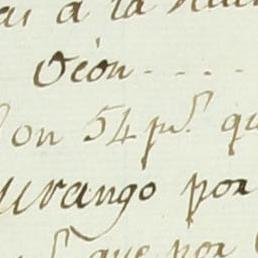 a la
Oéon - - - -
on 54 p.s qu
urango por
que por